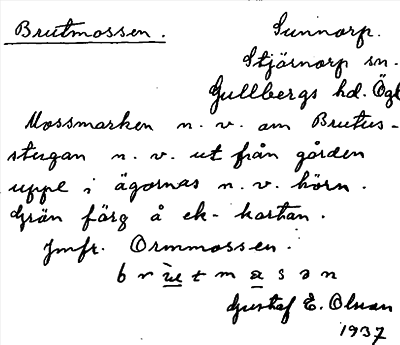 Brutmossen.
Sunnorp.
Stjärnorp sn.
Gullbergs hd. Ögl
Mossmarken n. v. om Brutus-
stugan n. v. ut från gården
uppe i ägornas n. v. hörn.
Grön färg å ek-kartan.
Jmfr. Ormmossen.
b r ù t m a s ə n
Gustaf E. Olsson
1937